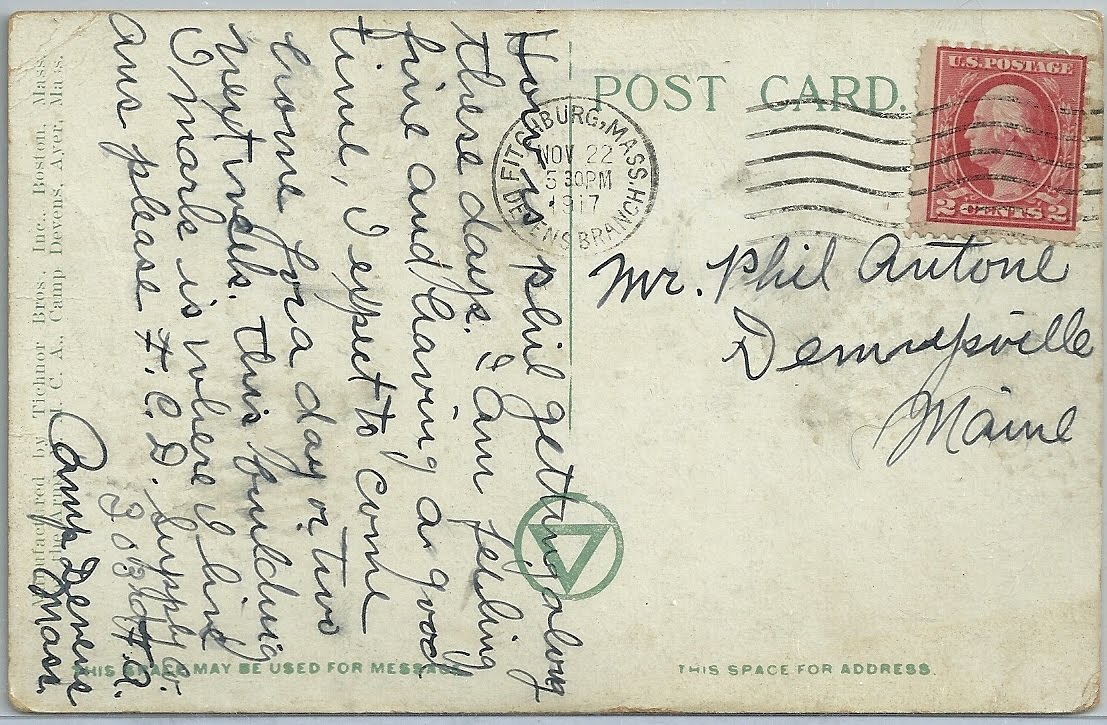 POST CARD.
U.S. POSTAGE
2 CENTS 2
FITCHBURG, MASS.
NOV 22
5 30 PM
1917
DEVENS BRANCH.
Mr. Phil Antone
Dennysville
Maine
How is phil getting along
these days. I am feeling
fine and having a good
time, I expect to come
home for a day or two
next week. this building
I mark is where I bind
ans please H. C. D. Supply Co.
303rd H. A.
Camp Devens
Mass.
Manufactured by Tichnor Bros., Inc., Boston, Mass.
the Army Y. M. C. A., Camp Devens, Ayer, Mass.
THIS SPACE MAY BE USED FOR MESSAGE.
THIS SPACE FOR ADDRESS.